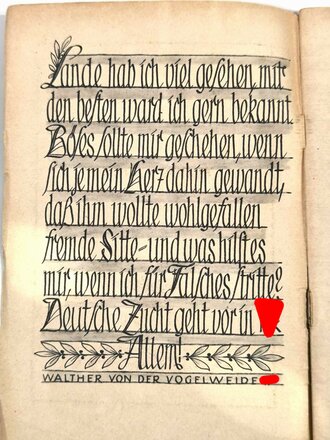 Lande hab ich viel gesehen, mit
den besten ward ich gern bekannt.
Böses sollte mir geschehen, wenn
sich je mein Herz dahin gewandt,
daß ihm wollte wohlgefallen
fremde Sitte – und was hülf es
mir, wenn ich für Falsches stritte?
Deutsche Zucht geht vor in
Allem!
WALTHER VON DER VOGELWEIDE